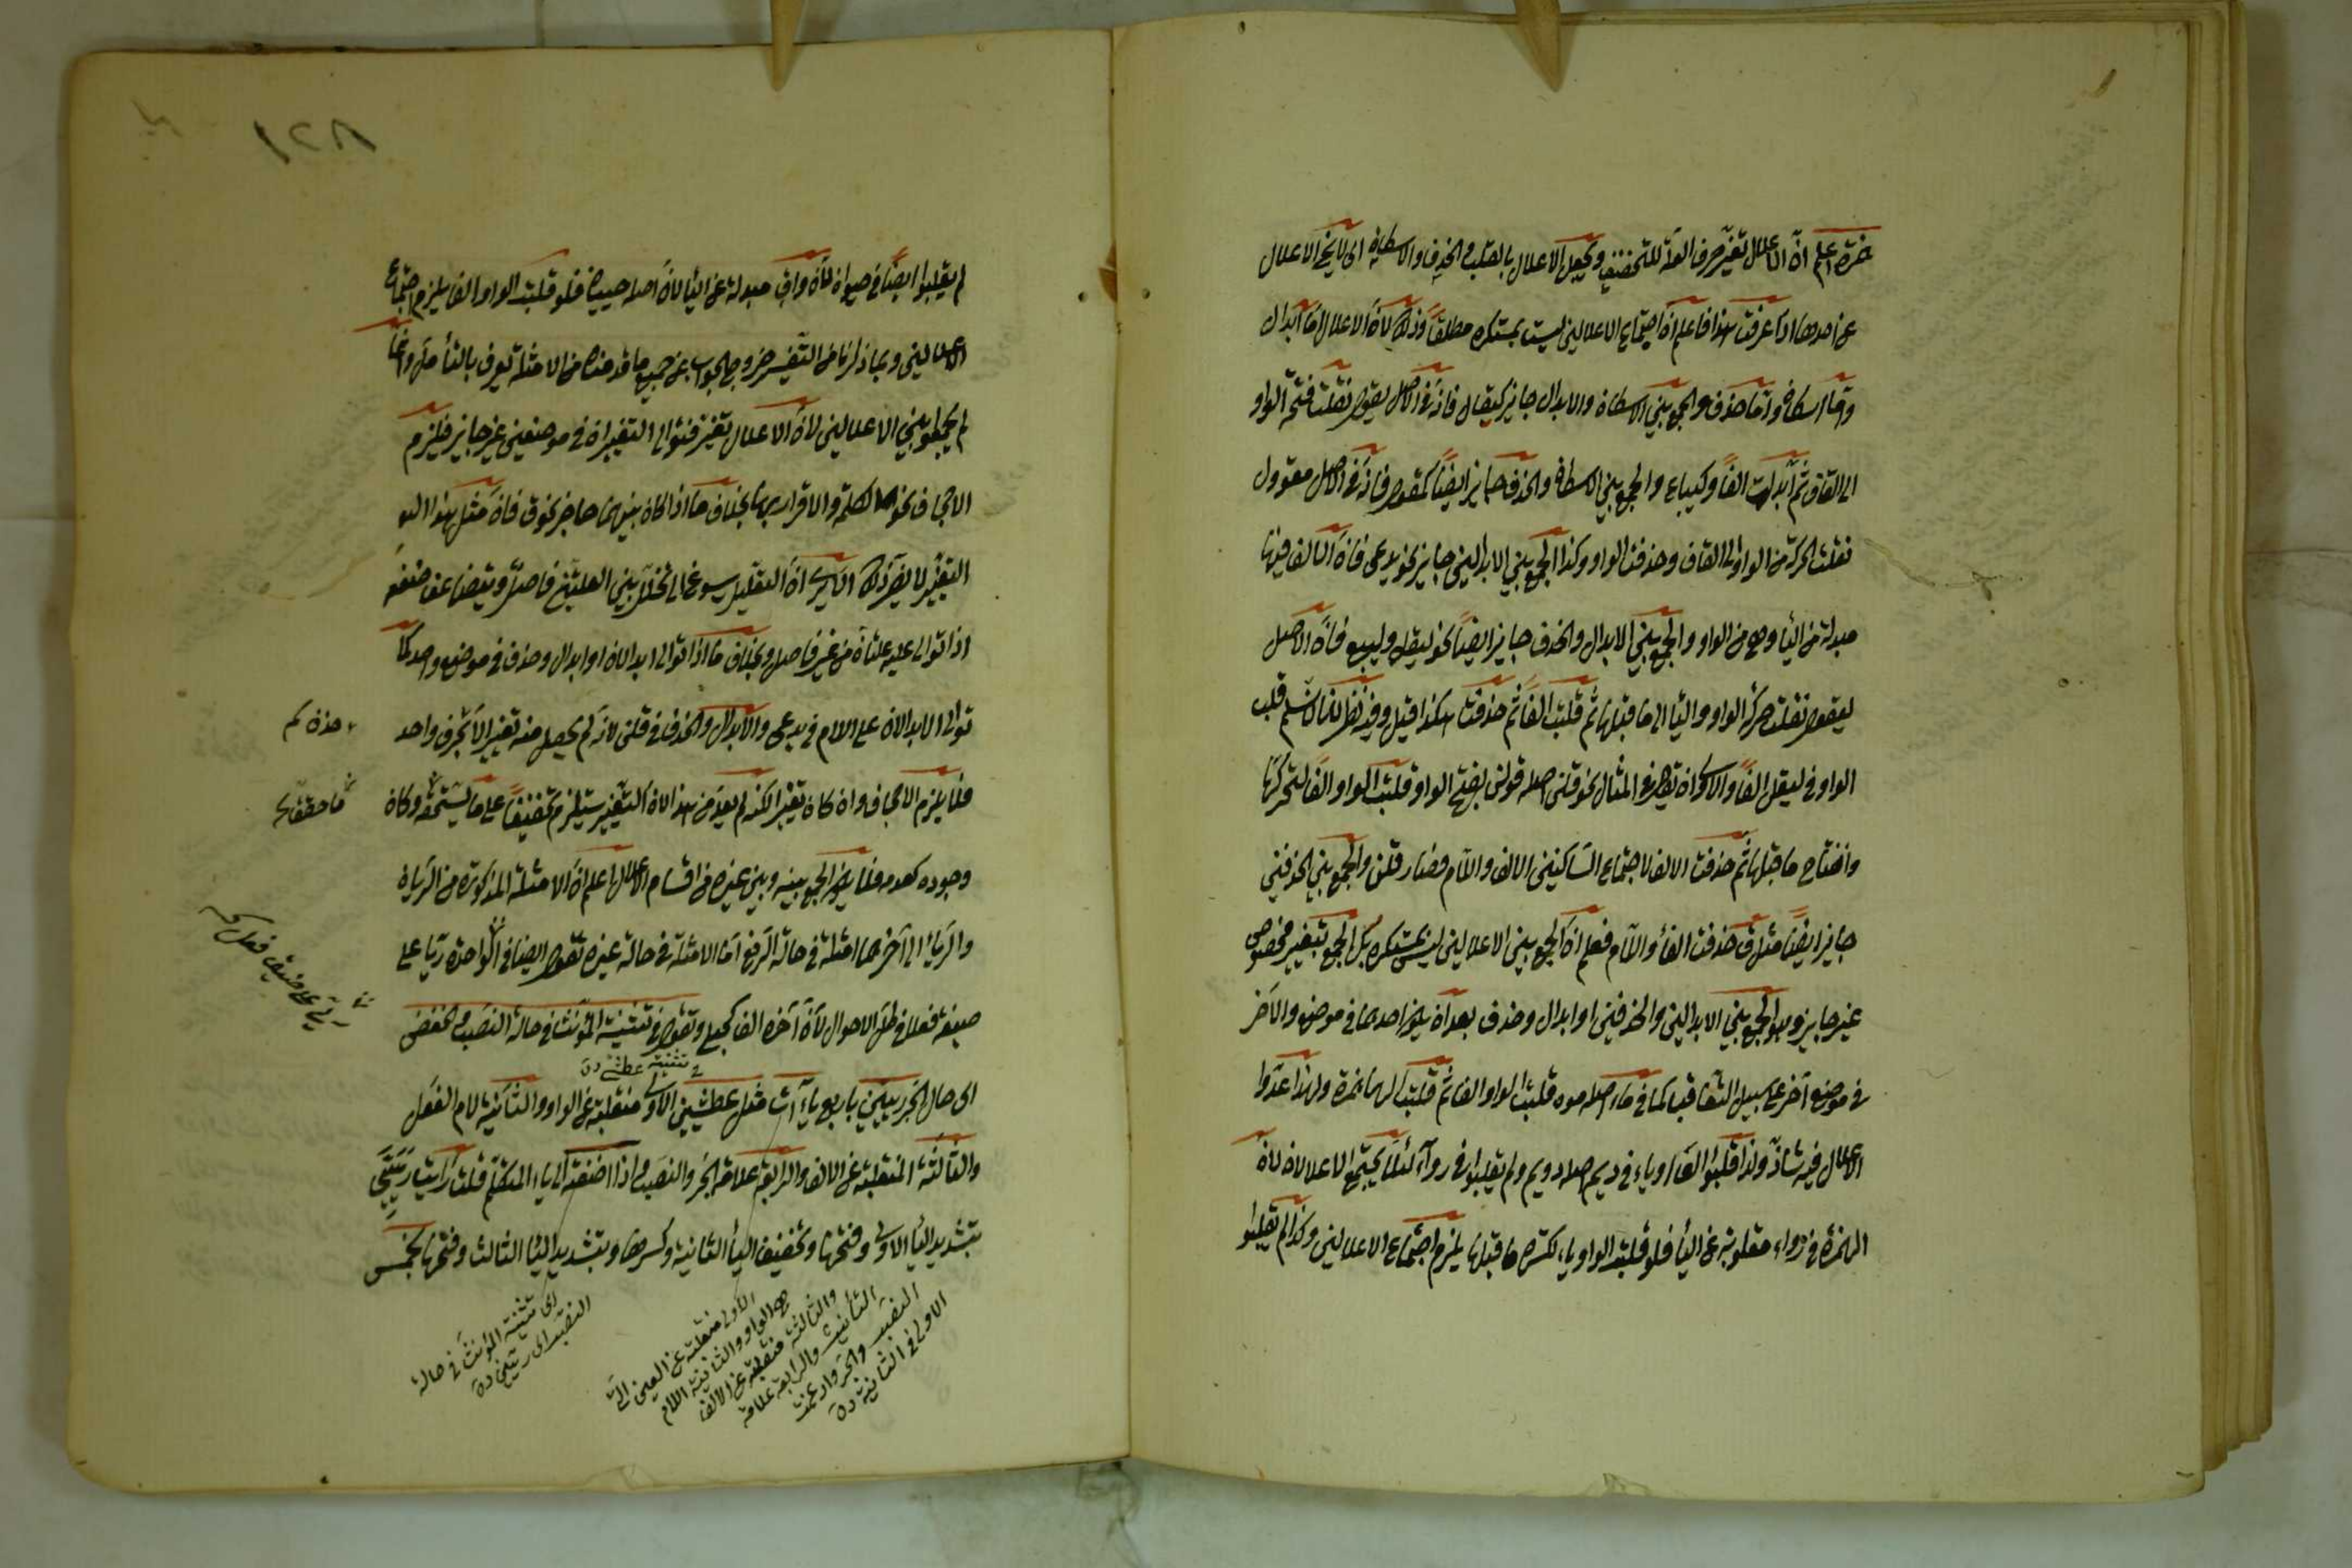 اعلم ان الاعلال تغير حرف العلة للتخفيف ويحصل الاعلال بالقلب والحذف والاسكان اى لا يخ الاعلال
عن احدها اذا عرفت هذا فاعلم ان اجتماع الاعلالين ليست بمستكره مطلقا وذلك لان الاعلال اما ابدال
واما اسكان واما حذف والجمع بين الاسكان والابدال جايز كيقال فان فى الاصل يقول نقلت فتحة الواو
الى القاف ثم ابدلت الفا وكيباع والجمع بين الاسكان والحذف جايز ايضا كمقول فان فى الاصل مقوول
نقلت الحركة من الواو الى القاف وحذفت الواو وكذا الجمع بين الابدالين جايز نحو يدعى فان الالف فيها
مبدلة من الياء وهى من الواو والجمع بين الابدال والحذف جايز ايضا نحو ليقل وليبع فان الاصل
ليقول نقلت حركة الواو والياء الى ما قبلها ثم قلبت الفا ثم حذفت هكذا قيل وفيه نظر لانا لا نسلم قلب
الواو فى ليقل الفا والاولى ان يقول فى المثال نحو قلن اصله قولن بفتح الواو قلبت الواو الفا لتحركها
وانفتاح ما قبلها ثم حذفت الالف لاجتماع الساكنين الالف واللام فصار قلن والجمع بين الحذفين
جايز ايضا مثل ق حذفت الفاء واللام فعلم ان الجمع بين الاعلالين ليس بمستكره بل الجمع بتغيير مخصوص
غير جايز وهو الجمع بين الابدالين والحذفين او ابدال وحذف بعد ان يكون احدهما فى موضع والآخر
فى موضع آخر على سبيل التعاقب كما فى ماء اصله موه قلبت الواو الفا ثم قلبت الهاء همزة ولهذا عدوا
الاعلال فيه شاذ ولذا قلبوا الفا او ياء فى ديم اصله دويم ولم يقلبوا فى رواء لئلا يجتمع الاعلالان لان
الهمزة فى رواء مقلوبة عن الياء فلو قلبت الواو ياء لكسرة ما قبلها يلزم اجتماع الاعلالين وكذا لم يقلبوا
١٢٨
لم يقلبوا ايضا فى حيوان لان واوه مبدلة عن الياء لان اصله حييان فلو قلبت الواو الفا يلزم اجتماع
الاعلالين وبما ذكرنا من التفسير خرج الجواب عن جميع ما قدمناه من الامثلة يعرف بالتأمل وانما
لم يجمعوا بين الاعلالين لان الاعلال تغيير فتوالى التغييران فى موضعين غير جايز فيلزم
الاجحاف نحو الكلمة والاقرار بها بخلاف ما اذا كان بينهما حاجز نحو ق فان مثل هذا
التغيير لا يضر ذلك الا يرى ان
اذا توالى عليه علتان من غير فاصل وبخلاف ما اذا توالى ابدالان او ابدال وحذف فى موضع واحد كما
توالى الابدالان على اللام فى يدعى والابدال والحذف فى قلن لانه لم يحصل منه تغيير الا بحرف واحد
فلا يلزم الاجحاف وان كان تغيير الكنه لم يعد من هذا لان التغيير يستلزم تخفيفا على ما يستحقه وكان
وجوده كعدمه فلا يكون الجمع بينه وبين غيره من اقسام الاعلال اعلم ان الامثلة المذكورة من الريان
والريا الى آخرهما امثلة فى حالة الرفع اما الامثلة فى حالة غيره تقول ايضا فى الواحدة ريا على
صيغة فعلى فى كل الاحوال لان آخره الف كحبلى وتقول فى تثنية المؤنث فى حالة النصب والخفض
اى حال الجر رييين باربع ياءآت مثل عطشيين الاولى منقلبة عن الواو والثانية لام الفعل
والثالثة المنقلبة عن الالف والرابعة علامة الجر والنصب واذا اضفته الى ياء المتكلم قلت رأيت ريتى
بتشديد الياء الاولى وفتحها وتخفيف الياء الثانية وكسرها وبتشديد الياء الثالث وفتحها بخمس
حذف لم
ما حققناه
فى تثنية عطشى
اى تثنية المؤنث فى حالة
النصب
الاولى منقلبة عن العين التى
هى الواو والثانية اللام
والثالثة منقلبة عن الالف
التأنيث والرابعة علامة
النصب والجر وادغمت
الاولى فى الثانية